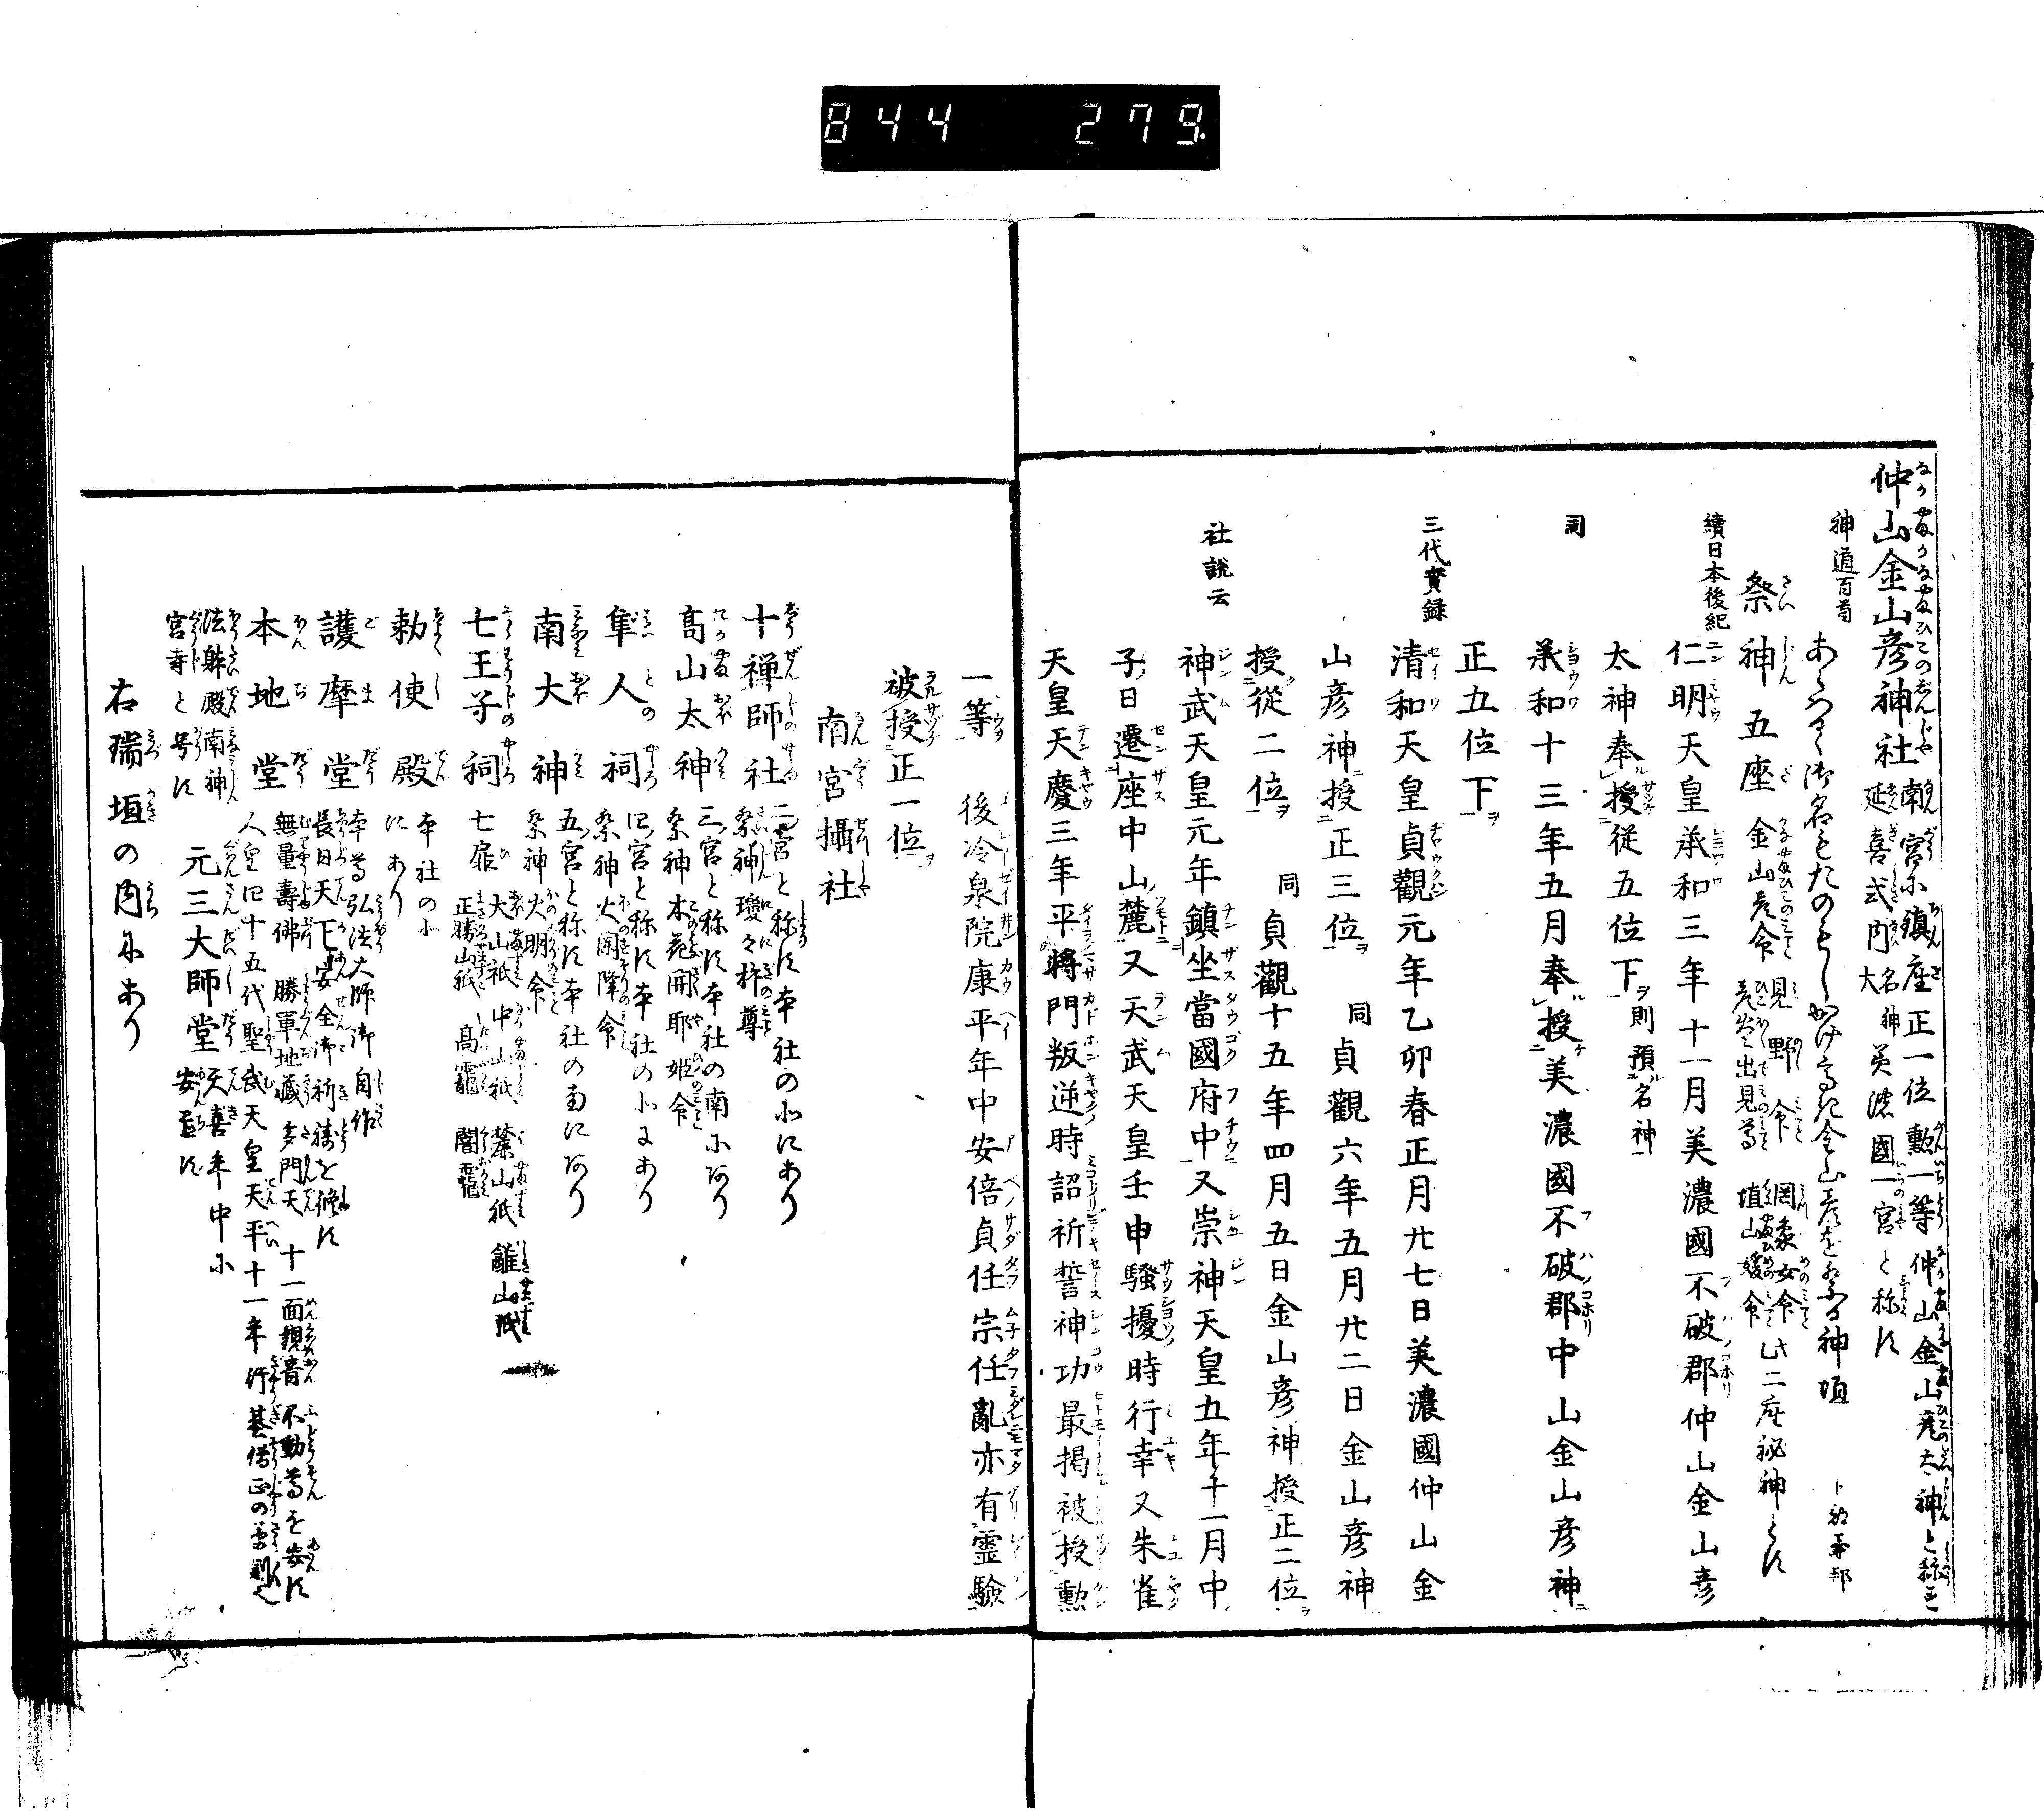 844 279.
仲山金山彦神社 南宮に鎮座正一位勲一等仲山金山彦太神と称す
延喜式内名神大 美濃國一宮と称す
神道百首
御名もたのもし 神垣 卜部兼邦
祭神五座 金山彦命 見野命 罔象女命
彦火々出見尊 埴山媛命 此二座秘神とす
續日本後紀
仁明天皇承和三年十一月美濃國不破郡仲山金山彦
太神奉授従五位下則預名神
同
承和十三年五月奉授美濃國不破郡中山金山彦神
正五位下
三代實録
清和天皇貞觀元年乙卯春正月廿七日美濃國仲山金
山彦神授正三位 同 貞觀六年五月廿二日金山彦神
授從二位 同 貞觀十五年四月五日金山彦神授正二位
社説云
神武天皇元年鎮坐當國府中又崇神天皇五年十一月中
子日遷座中山麓又天武天皇壬申騷擾時行幸又朱雀
天皇天慶三年平將門叛逆時詔祈誓神功最掲被授勲
一等 後冷泉院康平年中安倍貞任宗任亂亦有霊驗
被授正一位
南宮攝社
十禅師社 二宮と称す本社の北にあり
祭神瓊々杵尊
髙山太神 三宮と称す本社の南にあり
祭神木花開耶姫命
隼人祠 四宮と称す本社の北にあり
祭神火闌降命
南大神 五宮と称す本社の南にあり
祭神火明命
七王子祠 七扉 大山祇 中山祇 麓山祇 籬山祇
正勝山祇 髙龗 闇龗
勅使殿 本社の北にあり
護摩堂 本尊弘法大師御自作
長日天下安全御祈祷を修す
本地堂 無量壽佛 勝軍地藏 多門天 十一面觀音 不動尊を安す
人皇四十五代聖武天皇天平十一年行基僧正の草創也
法躰殿南神宮寺と号す 元三大師堂 天喜年中に安置す
右瑞垣の内にあり